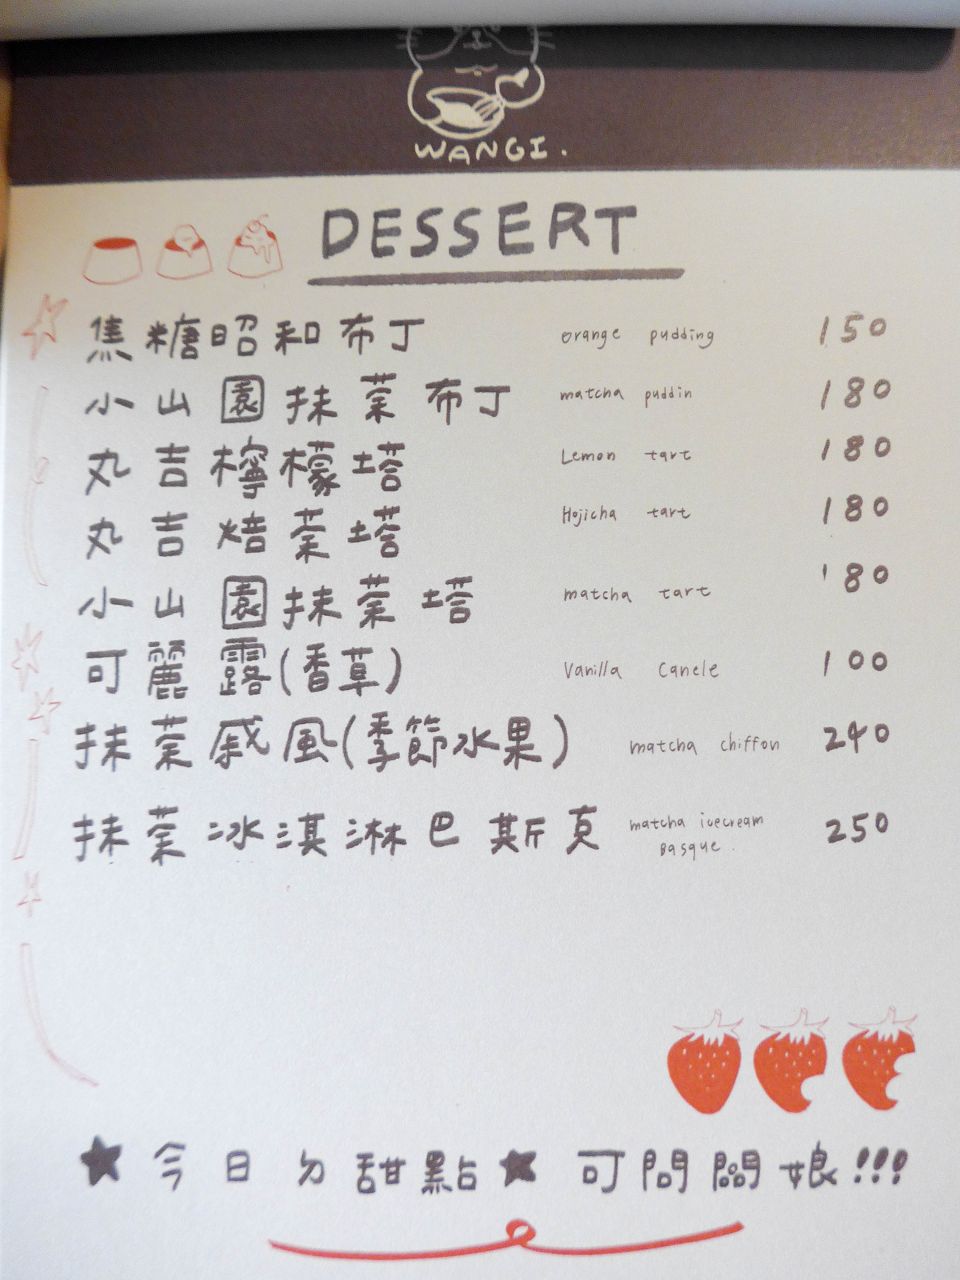 WANGI.
DESSERT
焦糖昭和布丁 orange pudding 150
小山園抹茶布丁 matcha puddin 180
丸吉檸檬塔 Lemon tart 180
丸吉焙茶塔 Hojicha tart 180
小山園抹茶塔 matcha tart 180
可麗露(香草) Vanilla Canele 100
抹茶戚風(季節水果) matcha chiffon 240
抹茶冰淇淋巴斯克 matcha icecream 250
Basque.
★今日ㄉ甜點★可問闆娘!!!